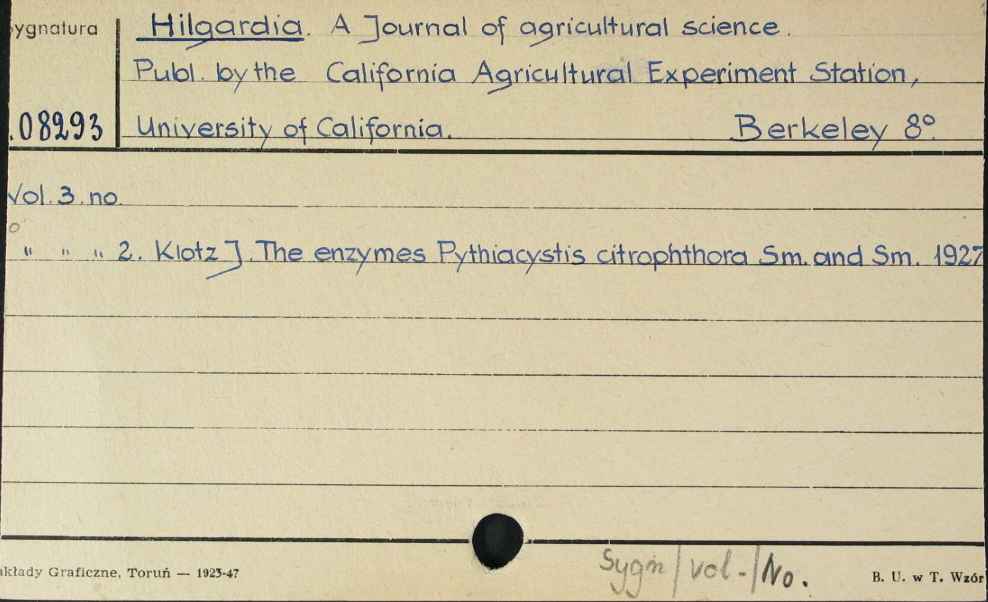 ygnatura
Hilgardia. A Journal of agricultural science.
Publ. by the California Agricultural Experiment Station,
.08293 University of California. Berkeley 8°
Vol. 3. no.
" " " 2. Klotz J. The enzymes Pythiacystis citrophthora Sm. and Sm. 1927
akłady Graficzne, Toruń — 1923-47
Sygn/vol-/No.
B. U. w T. Wzór